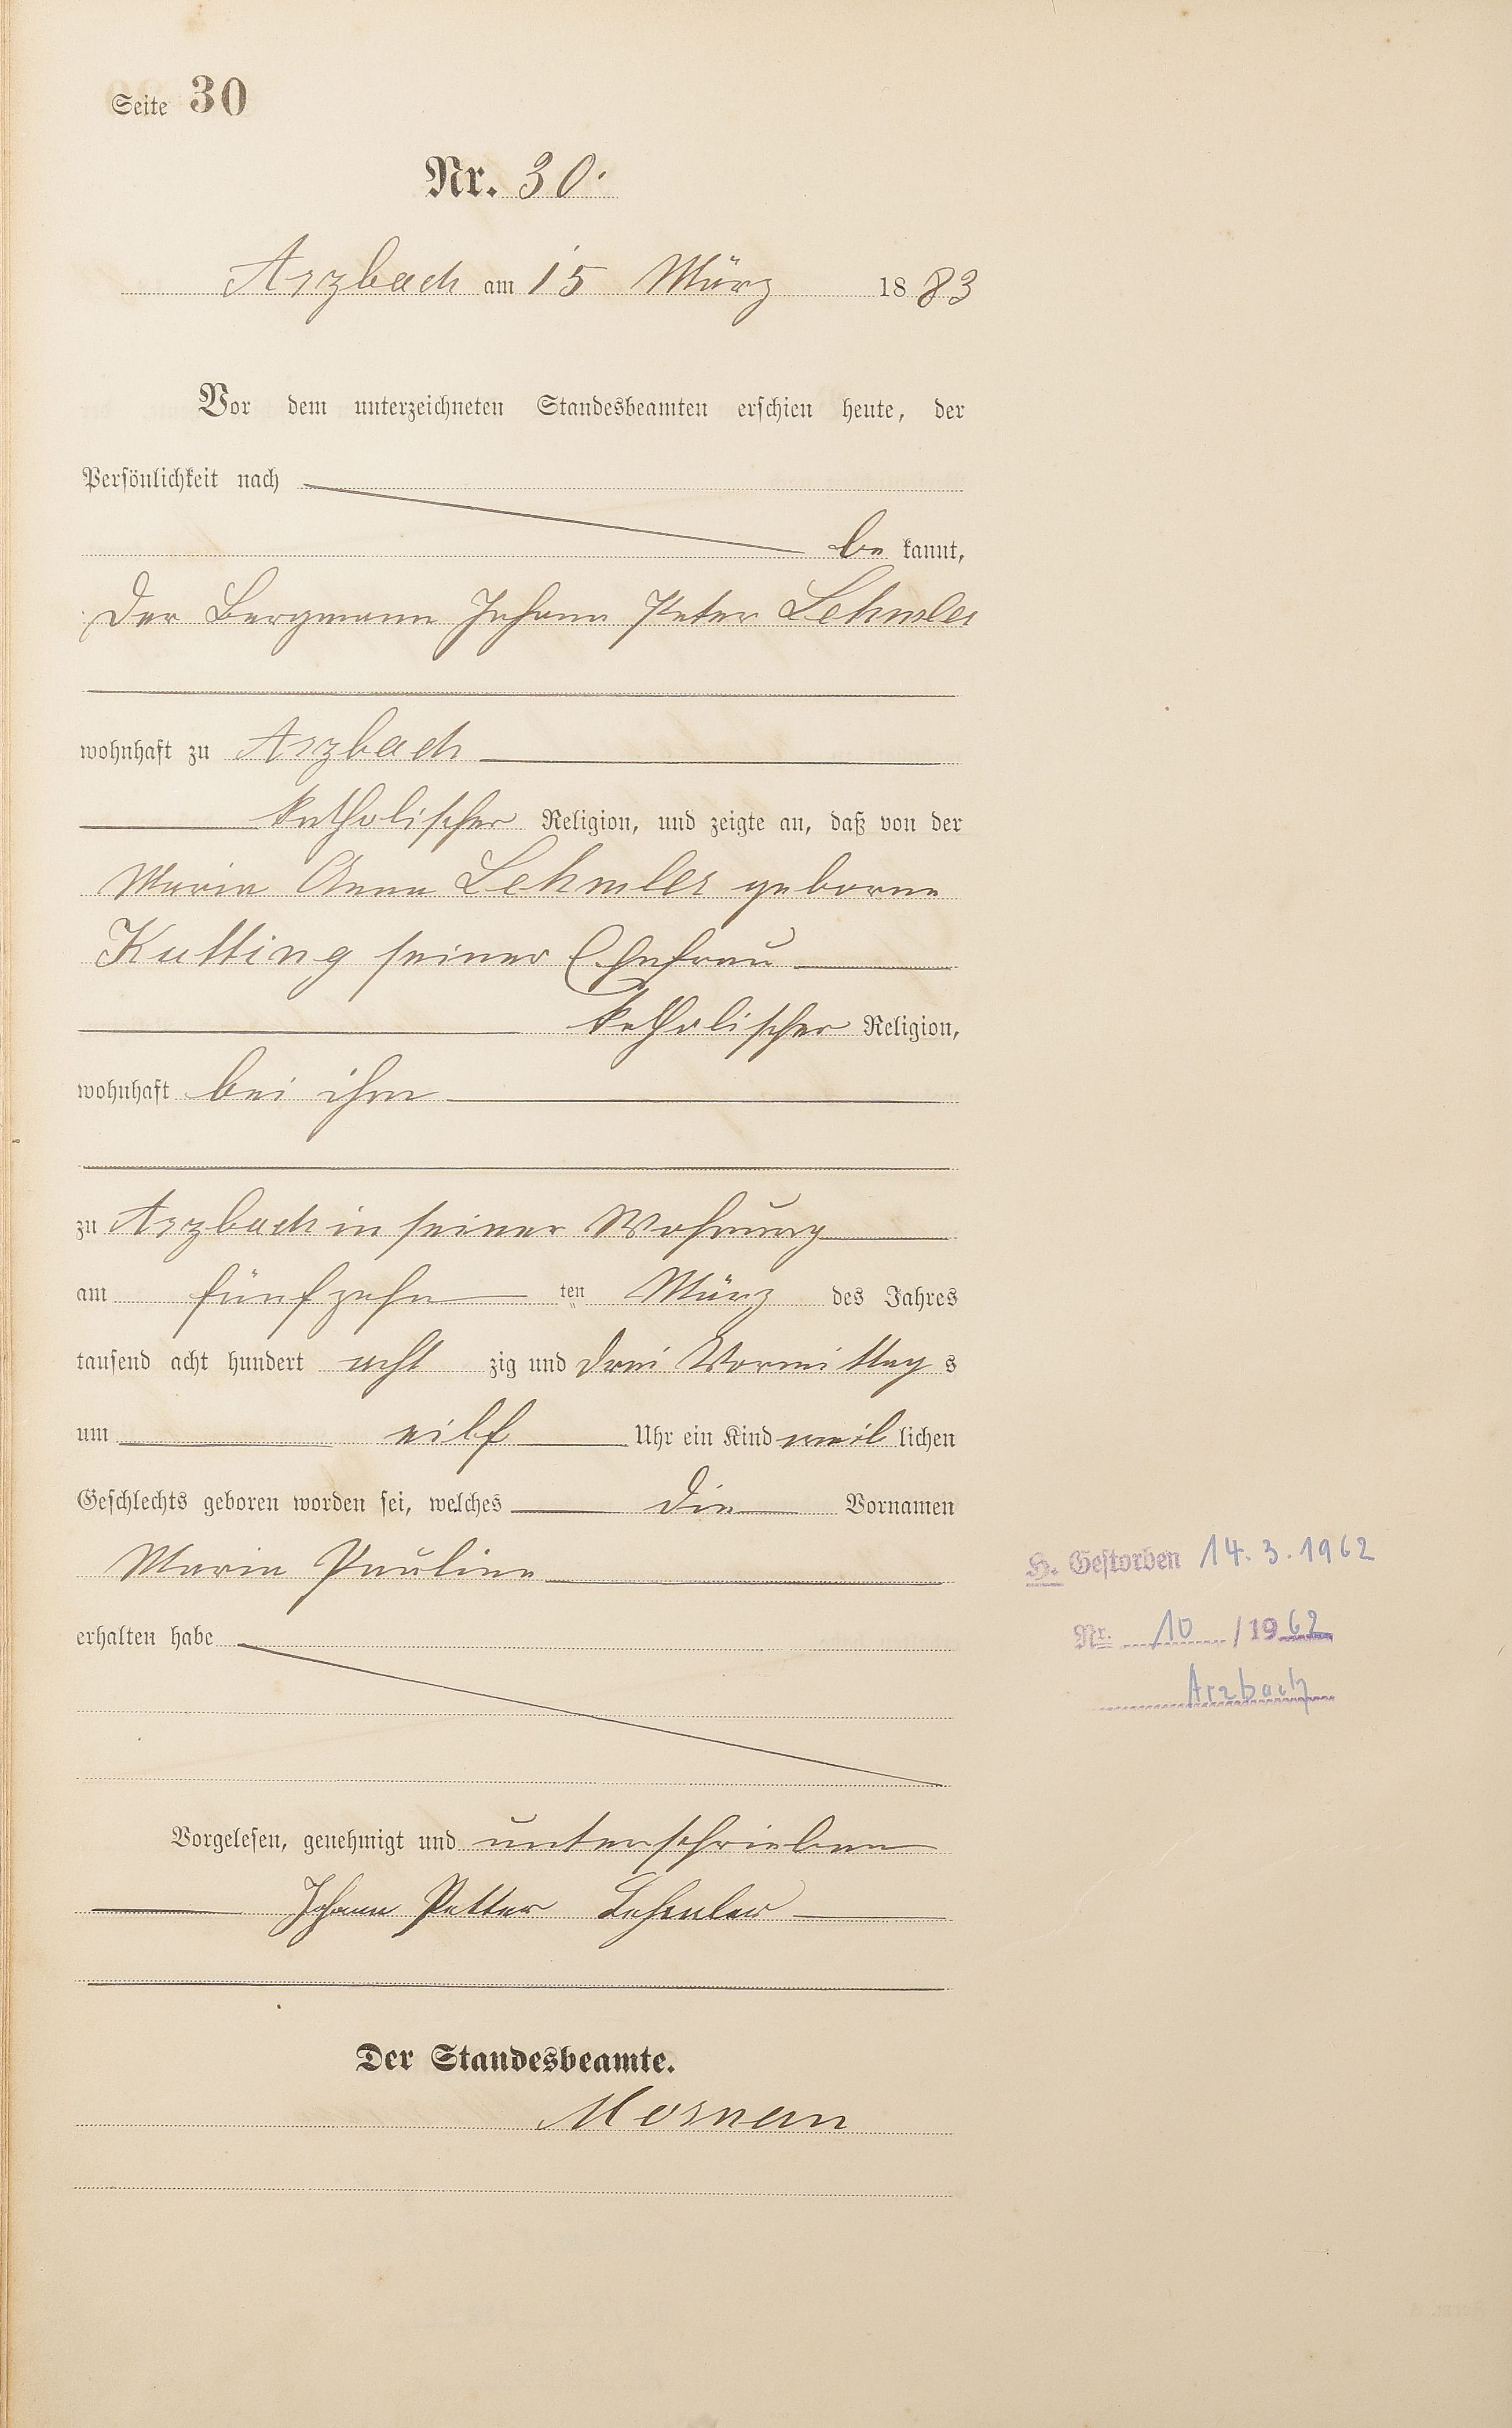 Seite 30
Nr. 30.
Arzbach am 15 März 1883
Vor dem unterzeichneten Standesbeamten erschien heute, der
Persönlichkeit nach
be kannt,
Der Bergmann Johann Peter Lehmler
wohnhaft zu Arzbach
katholischer Religion, und zeigte an, daß von der
Maria Anna Lehmler geborne
Kutting seiner Ehefrau
katholischer Religion,
wohnhaft bei ihm
zu Arzbach in seiner Wohnung
am fünfzehn ten März des Jahres
tausend acht hundert acht zig und drei Vormittag s
um eilf Uhr ein Kind weib lichen
Geschlechts geboren worden sei, welches die Vornamen
Maria Pauline
erhalten habe
H. Gestorben 14. 3. 1962
Nr. 10 / 1962
Arzbach
Vorgelesen, genehmigt und unterschrieben
Johann Petter Lehmler
Der Standesbeamte.